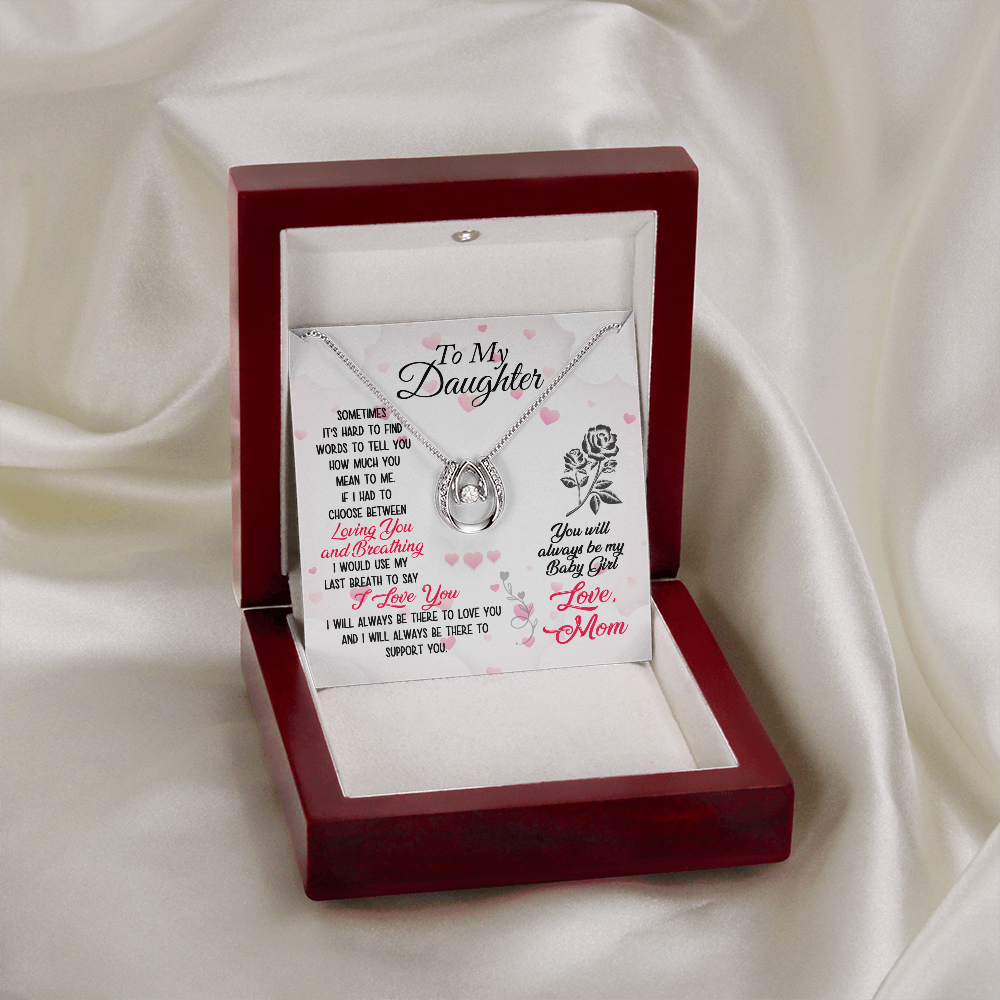 To My
Daughter
SOMETIMES
IT'S HARD TO FIND
WORDS TO TELL YOU
HOW MUCH YOU
MEAN TO ME.
IF I HAD TO
CHOOSE BETWEEN
Loving You
and Breathing
I WOULD USE MY
LAST BREATH TO SAY
I Love You
I WILL ALWAYS BE THERE TO LOVE YOU
AND I WILL ALWAYS BE THERE TO
SUPPORT YOU.
You will
always be my
Baby Girl
Love,
Mom